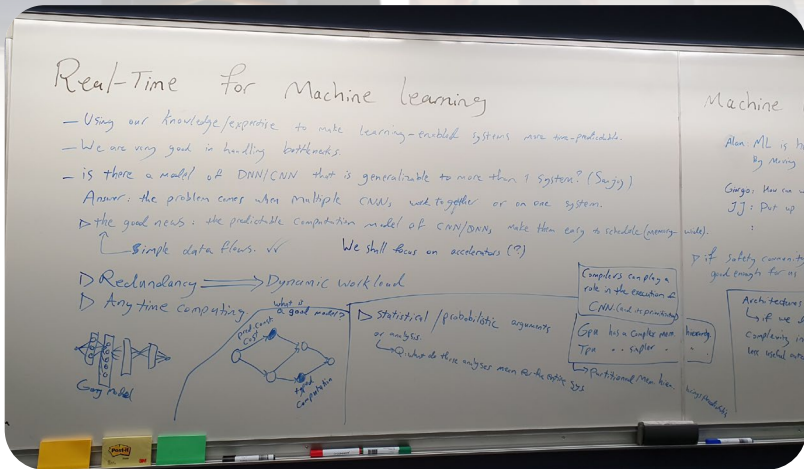 Real-Time for Machine Learning
- Using our knowledge/expertise to make learning-enabled systems more time-predictable.
- We are very good in handling bottlenecks.
- is there a model of DNN/CNN that is generalizable to more than 1 system? (Sanjoy)
Answer: the problem comes when multiple CNNs work together or on one system.
▷ the good news: the predictable computation model of CNN/DNNs make them easy to schedule (memory-wide).
Simple data flows. ✓✓
We shall focus on accelerators (?)
▷ Redundancy ⟹ Dynamic workload
▷ Anytime computing
What is a good model?
pred. const
cost
typed
computation
Gang model
▷ Statistical/probabilistic arguments
or analysis.
Q: what do these analyses mean for the entire sys
Compilers can play a
role in the execution of
CNN
Gpu has a complex mem. hierarchy.
Tpu " " simpler " "
Partitioned Mem
Machine
Alan ML is
By
Giorgio: How can
JJ: Put up
:
▷ if safety community
good enough for us
Architectures
if we d
complexity in
less useful
Post-it